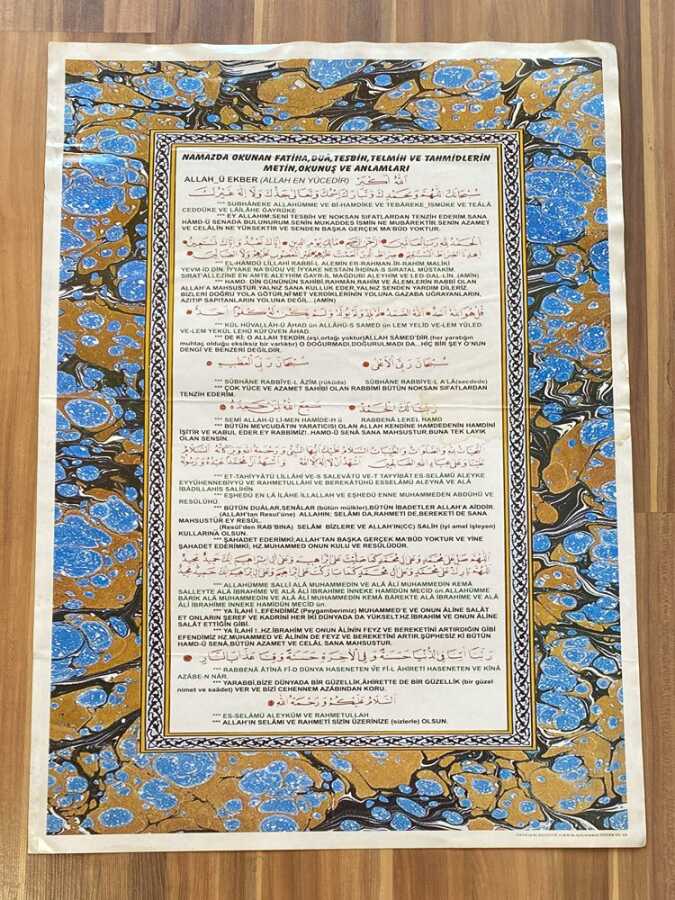 NAMAZDA OKUNAN FATİHA,DUÂ,TESBİH,TELMİH VE TAHMİDLERİN
METİN,OKUNUŞ VE ANLAMLARI
ALLAH_Ü EKBER (ALLAH EN YÜCEDİR) اَللّٰهُ اَكْبَرُ
سُبْحَانَكَ اللّٰهُمَّ وَبِحَمْدِكَ وَتَبَارَكَ اسْمُكَ وَتَعَالٰى جَدُّكَ وَلَا اِلٰهَ غَيْرُكَ
*** SUBHÂNEKE ALLAHÜMME VE Bİ-HAMDİKE VE TEBÂREKE_İSMÜKE VE TEÂLÂ
CEDDÜKE VE LÂİLÂHE ĞAYRÜKE
*** EY ALLAHIM,SENİ TESBİH VE NOKSAN SIFATLARDAN TENZİH EDERİM.SANA
HAMD-Ü SENADA BULUNURUM.SENİN MUKADDES İSMİN NE MUBÂREKTİR SENİN AZAMET
VE CELÂLİN NE YÜKSEKTİR VE SENDEN BAŞKA GERÇEK MA'BÛD YOKTUR.
*** EL-HAMDÜ LİLLAHİ RABBİ-L ALEMİN ER-RAHMAN İR-RAHİM MALİKİ
YEVM-İD DİN. İYYAKE NA'BÜDÜ VE İYYAKE NESTAİN İHDİNA-S SIRATAL MÜSTAKİM.
SIRAT'ALLEZİNE EN AMTE ALEYHİM GAYR-İL MAĞDUBİ ALEYHİM VE LED-DAL-LİN. (AMİN)
*** HAMD. DİN GÜNÜNÜN SAHİBİ,RAHMAN,RAHİM VE ÂLEMLERİN RABBİ OLAN
ALLAH'A MAHSUSTUR.YALNIZ SANA KULLUK EDER,YALNIZ SENDEN YARDIM DİLERİZ.
BİZLERİ DOĞRU YOLA GÖTÜR,NİMET VERDİKLERİNİN YOLUNA GAZABA UĞRAYANLARIN,
AZITIP SAPITANLARIN YOLUNA DEĞİL...(AMİN)
*** KÜL HÜVALLÂH-Ü ÂHAD ün ALLÂHÜ-S SAMED ün LEM YELİD VE-LEM YÜLED
VE-LEM YEKÜL LEHÛ KÜFÜVEN ÂHAD.
*** DE Kİ; O ALLAH TEKDİR.(eşi,ortağı yoktur)ALLAH SÂMED'DİR. (her yaratığın
muhtaç olduğu eksiksiz bir varlıktır) O DOĞURMADI,DOĞURULMADI DA...HİÇ BİR ŞEY O'NUN
DENGİ VE BENZERİ DEĞİLDİR.
سُبْحَانَ رَبِّيَ الْعَظِيمِ سُبْحَانَ رَبِّيَ الْاَعْلٰى
*** SÜBHÂNE RABBİYE-L ÂZİM (rükûda) SÜBHÂNE RABBİYE-L A'LÂ(secdede)
*** ÇOK YÜCE VE AZAMET SAHİBİ OLAN RABBİMİ BÜTÜN NOKSAN SIFATLARDAN
TENZİH EDERİM.
سَمِعَ اللّٰهُ لِمَنْ حَمِدَهُ رَبَّنَا لَكَ الْحَمْدُ
*** SEMİ ALLAH-Ü Lİ-MEN HAMİDE-H ü RABBENÂ LEKEL HAMD
*** BÜTÜN MEVCUDÂTIN YARATICISI OLAN ALLAH KENDİNE HAMDEDENİN HAMDİNİ
İŞİTİR VE KABUL EDER.EY RABBİMİZ!..HAMD-Ü SENÂ SANA MAHSUSTUR.BUNA TEK LAYIK
OLAN SENSİN.
*** ET-TAHİYYÂTÜ LİLLÂHİ VE-S SALEVÂTÜ VE-T TAYYİBÂT ES-SELÂMÜ ALEYKE
EYYÜHENNEBİYYÜ VE RAHMETULLAHİ VE BEREKÂTÜHÜ ESSELÂMÜ ALEYNÂ VE ALÂ
İBÂDİLLAHİS SALİHİN.
*** EŞHEDÜ EN LÂ İLÂHE İLLALLAH VE EŞHEDÜ ENNE MUHAMMEDEN ABDÜHÛ VE
RESÛLÜHÛ.
*** BÜTÜN DUÂLAR,SENÂLAR (bütün mülkler),BÜTÜN İBADETLER ALLAH'A AİDDİR.
(Allah'tan Resul'üne) ALLAHIN; SELÂMI DA,RAHMETİ DE,BEREKETİ DE SANA
MAHSUSTUR EY RESÛL.
(Resûl'den RAB'BINA) SELÂM BİZLERE VE ALLAH'IN(CC) SALİH (iyi amel işleyen)
KULLARINA OLSUN.
*** ŞAHADET EDERİMKİ;ALLAH'TAN BAŞKA GERÇEK MA'BÛD YOKTUR VE YİNE
ŞAHADET EDERİMKİ; HZ.MUHAMMED ONUN KULU VE RESÛLÜDÜR.
*** ALLAHÜMME SALLİ ALÂ MUHAMMEDİN VE ALÂ ÂLİ MUHAMMEDİN KEMÂ
SALLEYTE ALÂ İBRAHİME VE ALÂ ÂLİ İBRAHİME İNNEKE HAMİDÜN MECİD ün.ALLAHÜMME
BÂRİK ALÂ MUHAMMEDİN VE ALÂ ÂLİ MUHAMMEDİN KEMÂ BÂREKTE ALÂ İBRAHİME VE ALÂ
ÂLİ İBRAHİME İNNEKE HAMİDÜN MECİD ün.
*** YA İLAHİ !..EFENDİMİZ (Peygamberimiz) MUHAMMED'E VE ONUN ÂLİNE SALÂT
ET ONLARIN ŞEREF VE KADRİNİ HER İKİ DÜNYADA DA YÜKSELT.HZ.İBRAHİM VE ONUN ÂLİNE
SALAT ETTİĞİN GİBİ.
*** YA İLAHİ !..HZ.İBRAHİM VE ONUN ÂLİNİN FEYZ VE BEREKETİNİ ARTIRDIĞIN GİBİ
EFENDİMİZ HZ.MUHAMMED VE ÂLİNİN DE FEYZ VE BEREKETİNİ ARTIR.ŞÜPHESİZ Kİ BÜTÜN
HAMD-Ü SENÂ,BÜTÜN AZAMET VE CELÂL SANA MAHSUSTUR.
رَبَّنَا اٰتِنَا فِي الدُّنْيَا حَسَنَةً وَفِي الْاٰخِرَةِ حَسَنَةً وَقِنَا عَذَابَ النَّارِ
*** RABBENÂ ÂTİNA Fİ-D DÜNYA HASENETEN VE Fİ-L ÂHİRETİ HASENETEN VE KİNÂ
AZÂBE-N NÂR.
*** YARABBİ,BİZE DÜNYADA BİR GÜZELLİK,ÂHİRETTE DE BİR GÜZELLİK (bir güzel
nimet ve saâdet) VER VE BİZİ CEHENNEM AZÂBINDAN KORU.
اَلسَّلَامُ عَلَيْكُمْ وَرَحْمَةُ اللّٰهِ
*** ES-SELÂMÜ ALEYKÜM VE RAHMETULLAH
*** ALLAH'IN SELÂMI VE RAHMETİ SİZİN ÜZERİNİZE (sizlerle) OLSUN.